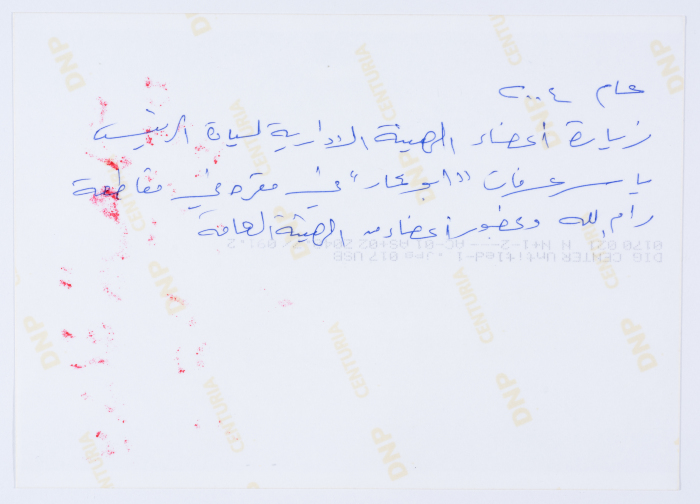 عام ٢٠٠٤
زيارة أعضاء الهيئة الادارية لسيادة الرئيس
ياسر عرفات "ابو عمار" في مقره في مقاطعة
رام الله وبحضور أعضاء من الهيئة العامة
DIG CENTER Untitled-1 . JPG 017 USB
DNP
CENTURIA
DNP
CENTURIA
DNP
CENTURIA
DNP
CENTURIA
DNP
CENTURIA
DNP
CENTURIA
DNP
CENTURIA
DNP
CENTURIA
DNP